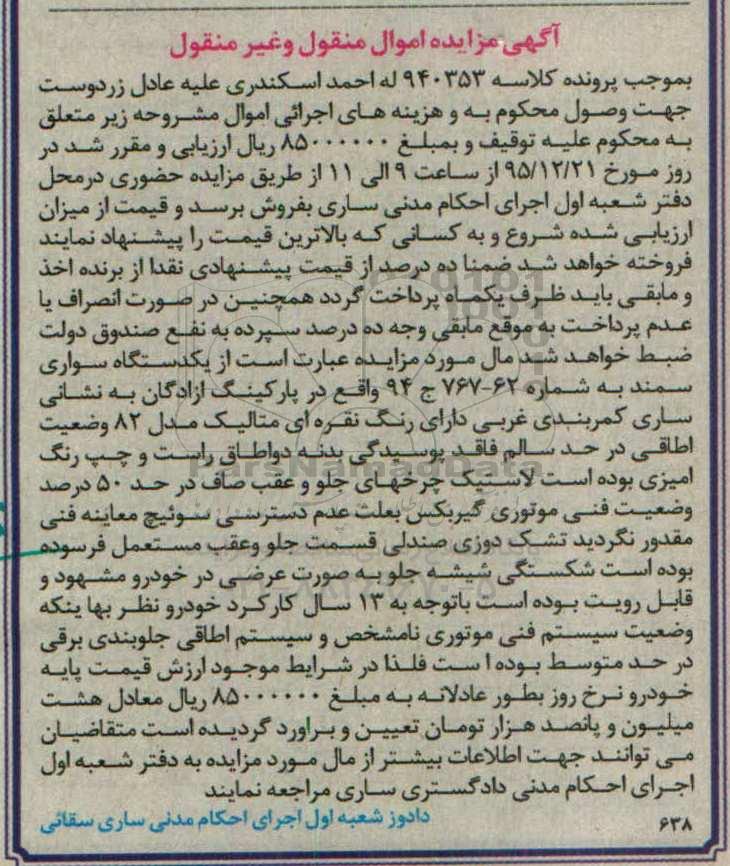 آگهی مزایده اموال منقول وغیر منقول
بموجب پرونده کلاسه ۹۴۰۳۵۳ له احمد اسکندری علیه عادل زردوست
جهت وصول محکوم به و هزینه های اجرائی اموال مشروحه زیر متعلق
به محکوم علیه توقیف و بمبلغ ۸۵۰۰۰۰۰۰ ریال ارزیابی و مقرر شد در
روز مورخ ۹۵/۱۲/۲۱ از ساعت ۹ الی ۱۱ از طریق مزایده حضوری درمحل
دفتر شعبه اول اجرای احکام مدنی ساری بفروش برسد و قیمت از میزان
ارزیابی شده شروع و به کسانی که بالاترین قیمت را پیشنهاد نمایند
فروخته خواهد شد ضمنا ده درصد از قیمت پیشنهادی نقدا از برنده اخذ
و مابقی باید ظرف یکماه پرداخت گردد همچنین در صورت انصراف یا
عدم پرداخت به موقع مابقی وجه ده درصد سپرده به نفع صندوق دولت
ضبط خواهد شد مال مورد مزایده عبارت است از یکدستگاه سواری
سمند به شماره ۶۲-۷۶۷ ج ۹۴ واقع در پارکینگ ازادگان به نشانی
ساری کمربندی غربی دارای رنگ نقره ای متالیک مدل ۸۲ وضعیت
اطاقی در حد سالم فاقد پوسیدگی بدنه دواطاق راست و چپ رنگ
امیزی بوده است لاستیک چرخهای جلو و عقب صاف در حد ۵۰ درصد
وضعیت فنی موتوری گیربکس بعلت عدم دسترسی سوئیچ معاینه فنی
مقدور نگردید تشک دوزی صندلی قسمت جلو وعقب مستعمل فرسوده
بوده است شکستگی شیشه جلو به صورت عرضی در خودرو مشهود و
قابل رویت بوده است باتوجه به ۱۳ سال کارکرد خودرو نظر بها ینکه
وضعیت سیستم فنی موتوری نامشخص و سیستم اطاقی جلوبندی برقی
در حد متوسط بوده ا ست فلذا در شرایط موجود ارزش قیمت پایه
خودرو نرخ روز بطور عادلانه به مبلغ ۸۵۰۰۰۰۰۰ ریال معادل هشت
میلیون و پانصد هزار تومان تعیین و براورد گردیده است متقاضیان
می توانند جهت اطلاعات بیشتر از مال مورد مزایده به دفتر شعبه اول
اجرای احکام مدنی دادگستری ساری مراجعه نمایند
دادوز شعبه اول اجرای احکام مدنی ساری سقائی
۶۳۸
ParsNamadData